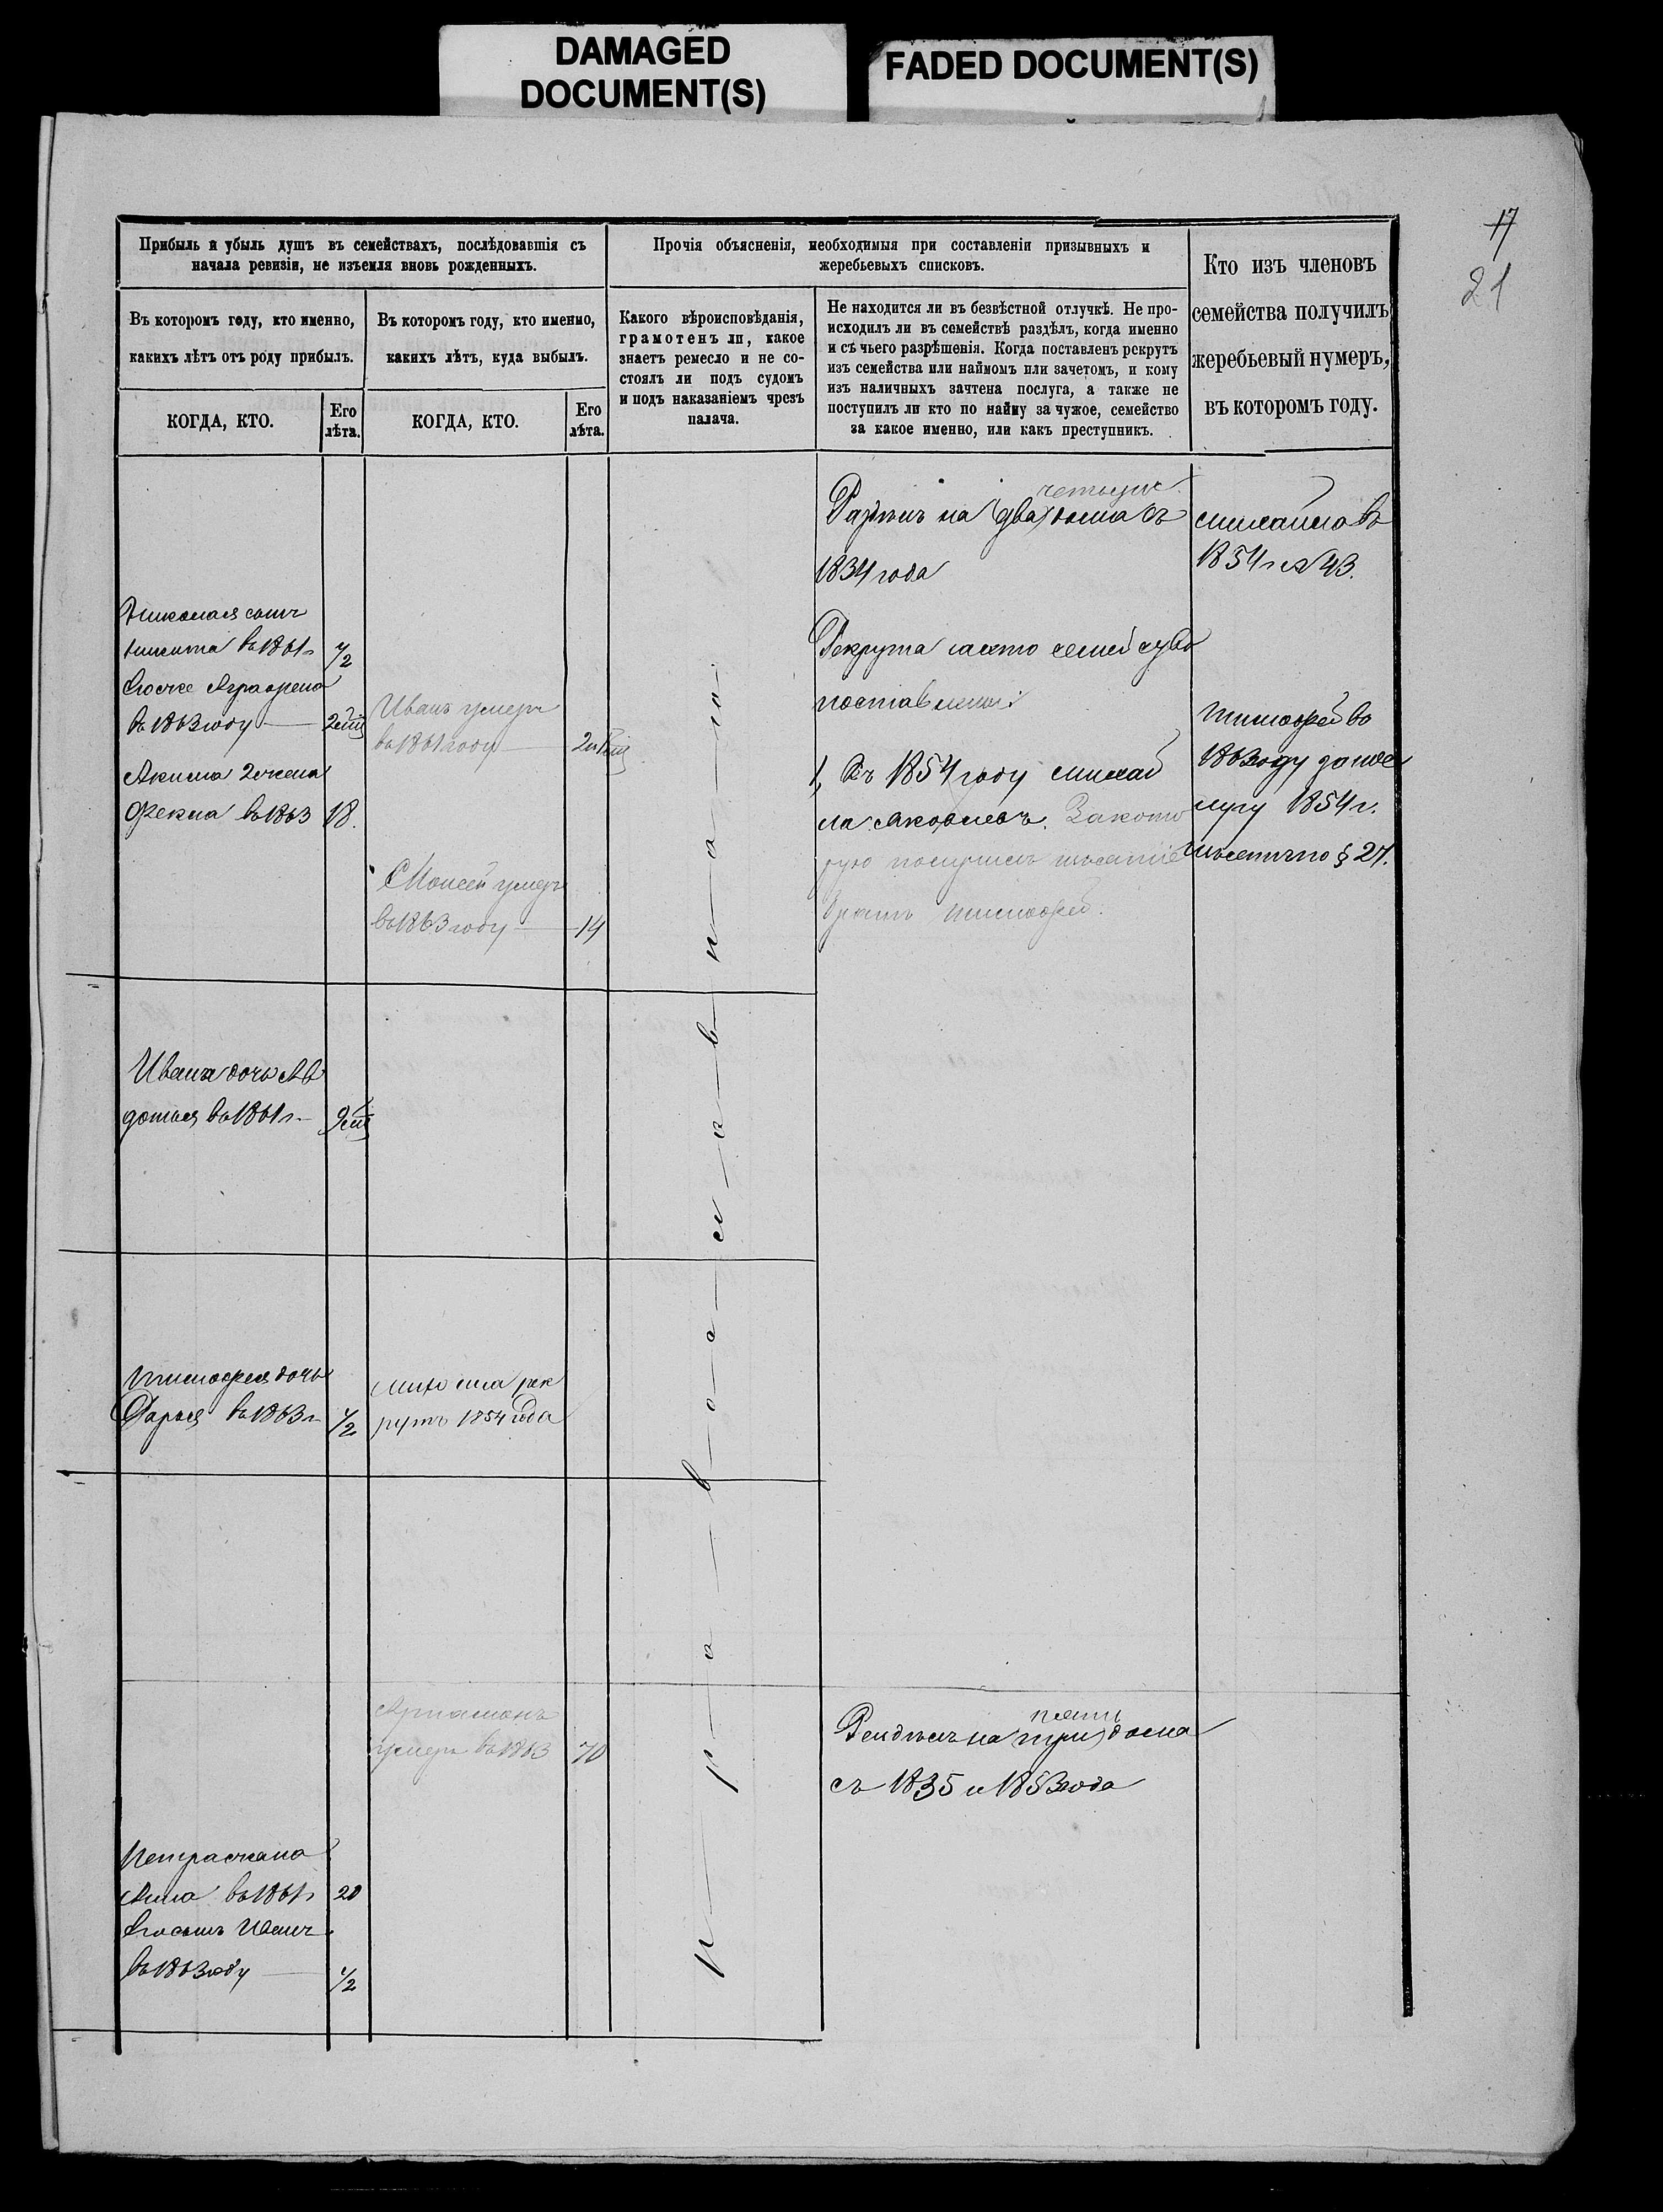 DAMAGED
DOCUMENT(S)
FADED DOCUMENT(S)
17
21
Прибыль и убыль душъ въ семействахъ, послѣдовавшія съ
начала ревизіи, не изъемля вновь рожденныхъ.
Въ которомъ году, кто именно,
какихъ лѣтъ отъ роду прибылъ.
КОГДА, КТО.
Его
лѣта.
Въ которомъ году, кто именно,
какихъ лѣтъ, куда выбылъ.
КОГДА, КТО.
Его
лѣта.
Прочія объясненія, необходимыя при составленіи призывныхъ и
жеребьевыхъ списковъ.
Какого вѣроисповѣданія,
грамотенъ ли, какое
знаетъ ремесло и не со-
стоялъ ли подъ судомъ
и подъ наказаніемъ чрезъ
палача.
Не находится ли въ безвѣстной отлучкѣ. Не про-
исходилъ ли въ семействѣ раздѣлъ, когда именно
и съ чьего разрѣшенія. Когда поставленъ рекрутъ
изъ семейства или наймомъ или зачетомъ, и кому
изъ наличныхъ зачтена послуга, а также не
поступилъ ли кто по найму за чужое, семейство
за какое именно, или какъ преступникъ.
Кто изъ членовъ
семейства получилъ
жеребьевый нумеръ,
въ которомъ году.
Николая сынъ
Никита въ 1861 г
1/2
Аграфена
въ 1863 году
Акима 2 жена
Фекла въ 1863
18.
Иванъ умеръ
въ 1861 году
Моисей умеръ
въ 1863 году
14
Ивана дочь Ав
дотья въ 1861 г.
Тимофея дочь
Дарья въ 1863 г
1/2
рек
рутъ 1854 года
Артамонъ
умеръ въ 1863
70
Петра жена
Анна въ 1861 г
20
Его сынъ Иванъ
въ 1863 году
1/2
православнаго
четыре
Раздѣлъ на (два) дома съ
1834 года
Рекрута семейство
поставлены:
1, Въ 1854 году Михай
ла Яковлевъ. За кото
рую
братъ Тимофей.
пять
Раздѣлъ на (три) дома
съ 1835 и 1853 года
Михайло въ
1854 г № 43.
Тимофей въ
1863 году за
1854 г.
по § 27.